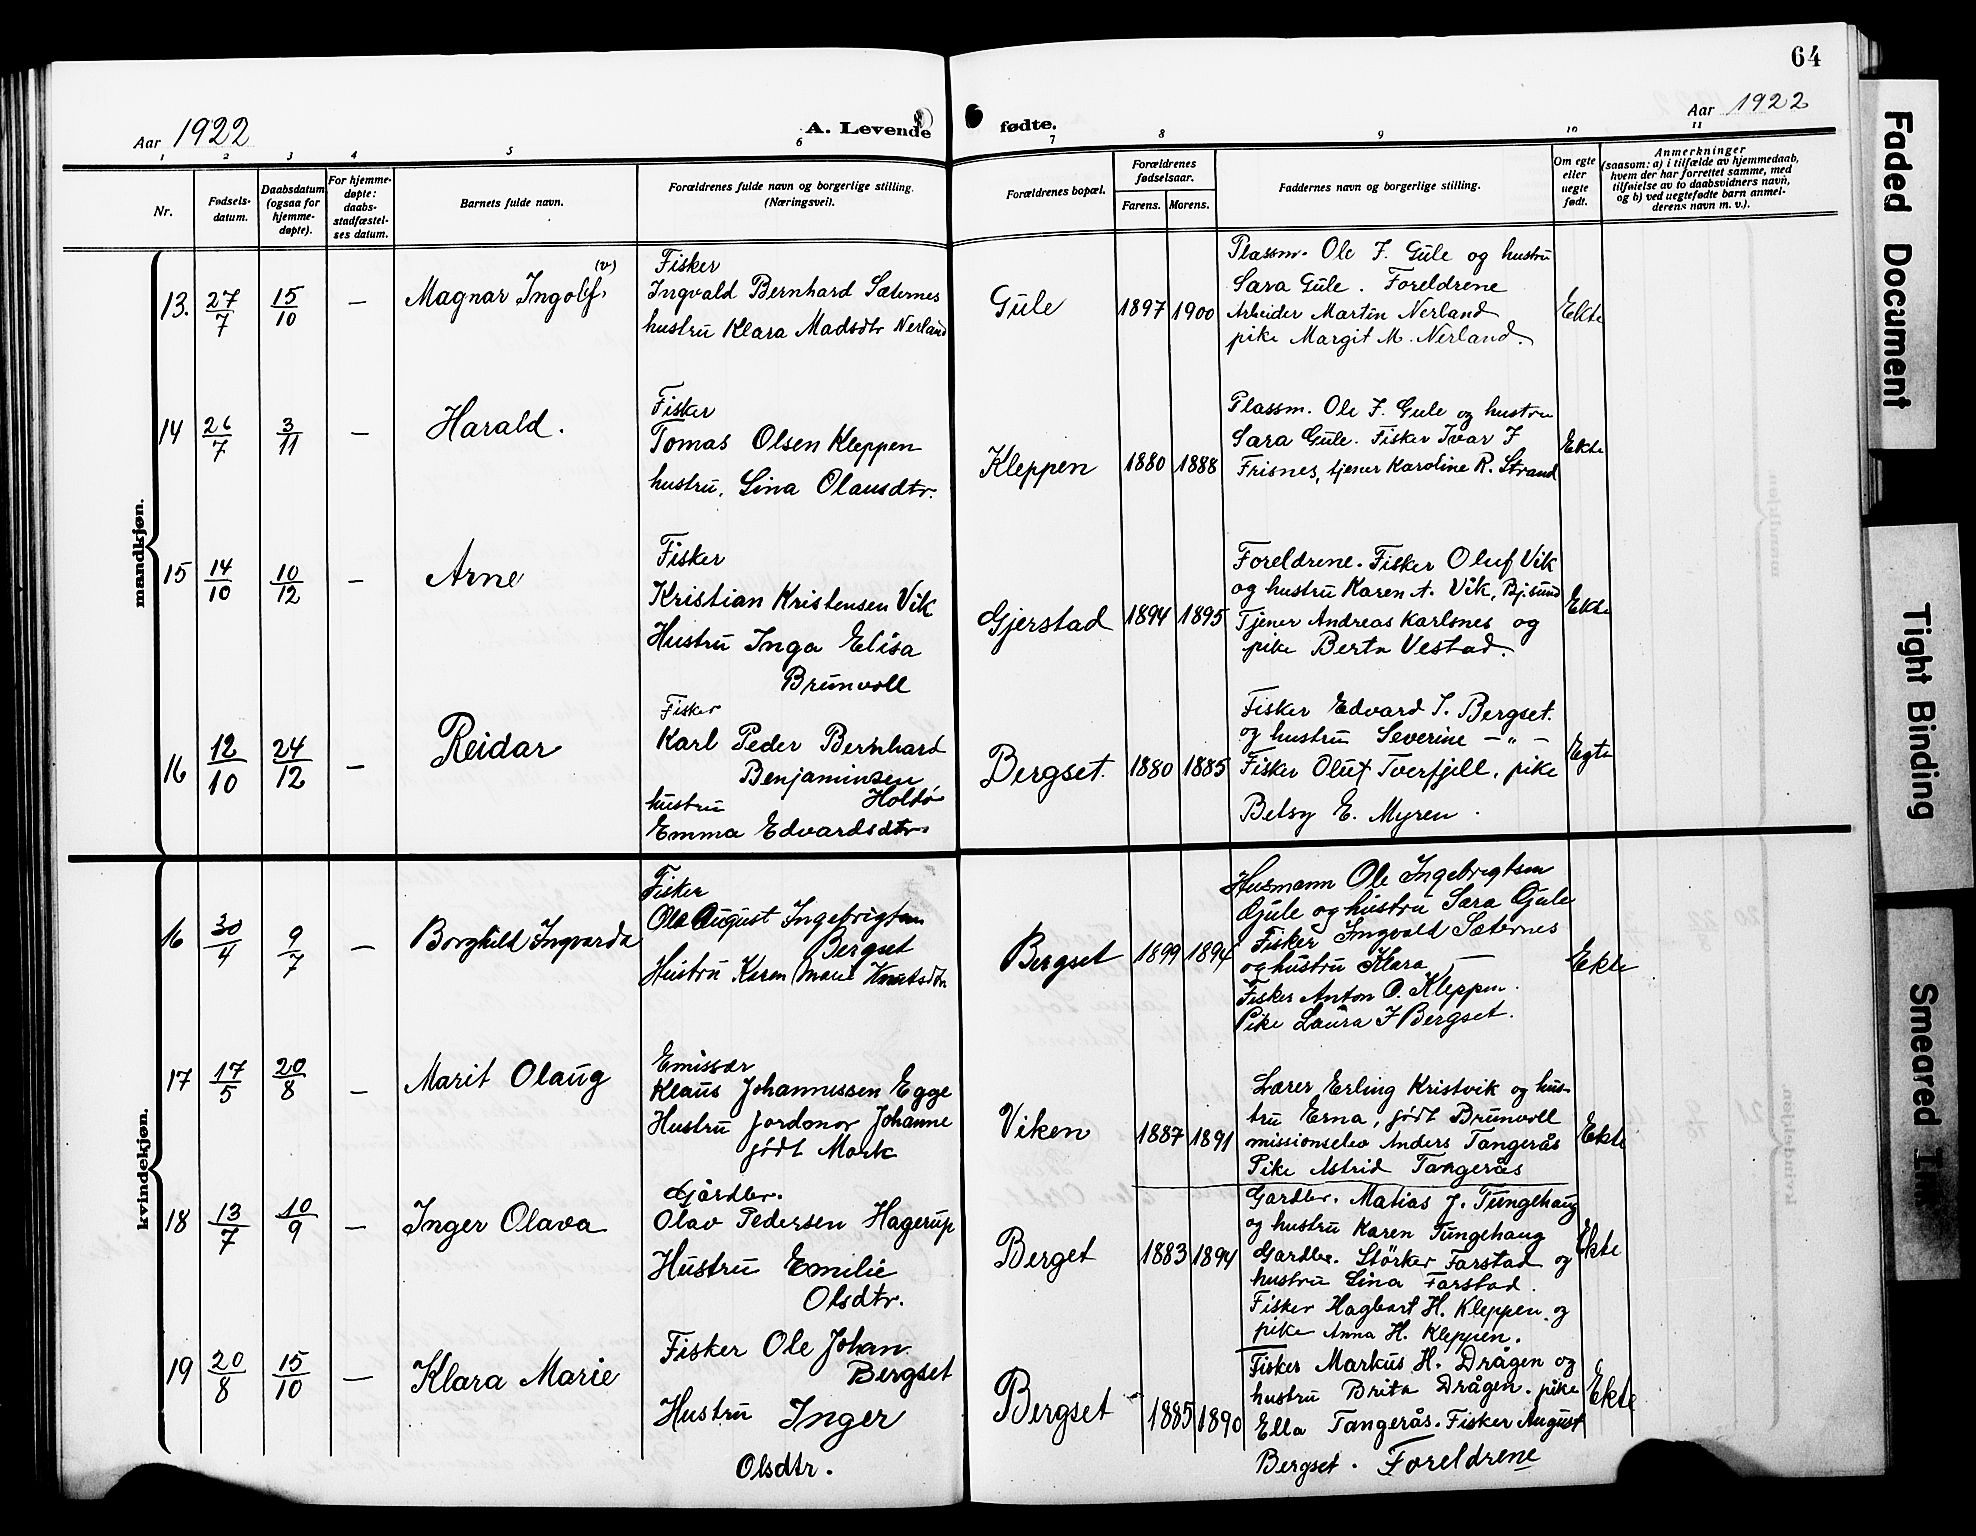 64
Aar 1922
A. Levende fødte.
Aar 1922
1 2 3 4 5 6 7 8 9 10 11
Nr.
Fødsels-
datum.
Daabsdatum
(ogsaa for
hjemme-
døpte).
For hjemme-
døpte:
daabs-
stadfæstel-
ses datum.
Barnets fulde navn.
Forældrenes fulde navn og borgerlige stilling.
(Næringsvei).
Forældrenes bopæl.
Forældrenes
fødselsaar.
Farens. Morens.
Faddernes navn og borgerlige stilling.
Om egte
eller
uegte
født.
Anmerkninger
(saasom: a) i tilfælde av hjemmedaab,
hvem der har forrettet samme, med
tilføielse av to daabsvidners navn,
og b) ved uegtefødte barn anmel-
derens navn m. v.).
mandkjøn.
13. 27/7 15/10 — Magnar Ingolf (v)
Fisker
Ingvald Bernhard Sæternes
hustru Klara Madsdtr Nerland
Gule 1897 1900
Plassm. Ole J. Gule og hustru
Sara Gule. Foreldrene
Arbeider Martin Nerland
pike Margit M. Nerland.
Ekte
14 26/7 3/11 — Harald.
Fisker
Tomas Olsen Kleppen
hustru, Lina Olausdtr.
Kleppen 1880 1888
Plassm. Ole J. Gule og hustru
Sara Gule. Fisker Ivar J
Frisnes, tjener Karoline R. Strand
Ekte
15 14/10 10/12 — Arne
Fisker
Kristian Kristensen Vik
Hustru Inga Elisa
Brunvoll
Gjerstad 1894 1895
Foreldrene. Fisker Oluf Vik
og hustru Karen A. Vik, Bj.sund
Tjener Andreas Karlsnes og
pike Berta Vestad.
Ekte
16 12/10 24/12 — Reidar
Fisker
Karl Peder Bernhard
Benjaminsen
hustru Holdø
Emma Edvardsdtr.
Bergset. 1880 1885
Fisker Edvard I. Bergset.
og hustru Severine — " —
Fisker Oluf Tverfjell, pike
Betsy E. Myren.
Egte
kvindekjøn.
16 30/4 9/7 — Borghild Ingvarda
Fisker
Ole August Ingebrigtsen
Bergset
Hustru Karen Marie Knutsdtr
Bergset 1899 1894
Husmann Ole Ingebrigtsen
Gjule og hustru Sara Gjule
Fisker Ingvald Sæternes
og hustru Klara —
Fisker Anton O. Kleppen.
Pike Laura J Bergset.
Ekte
17 17/5 20/8 — Marit Olaug
Emissær
Klaus Johannessen Egge
Hustru Jordmor Johanne
født Mork
Viken 1887 1891
Lærer Erling Kristvik og hus-
tru Erna, født Brunvoll
missionselev Anders Tangerås
Pike Astrid Tangerås
Ekte
18 13/7 10/9 — Inger Olava
Gårdbr.
Olav Pedersen Hagerup
Hustru Emilie
Olsdtr.
Berget 1883 1894
Gardbr. Matias J. Tungehaug
og hustru Karen Tungehaug
Gardbr. Størker Farstad og
hustru Lina Farstad.
Fisker Hagbart H. Kleppen, og
pike Anna H. Kleppen.
Ekte
19 20/8 15/10 — Klara Marie
Fisker Ole Johan
Bergset
Hustru Inger
Olsdtr.
Bergset 1885 1890
Fisker Markus H. Drågen og
hustru Brita Drågen. pike
Ella Tangerås. Fisker August
Bergset. Foreldrene
Ekte
Faded Document
Tight Binding
Smeared Ink